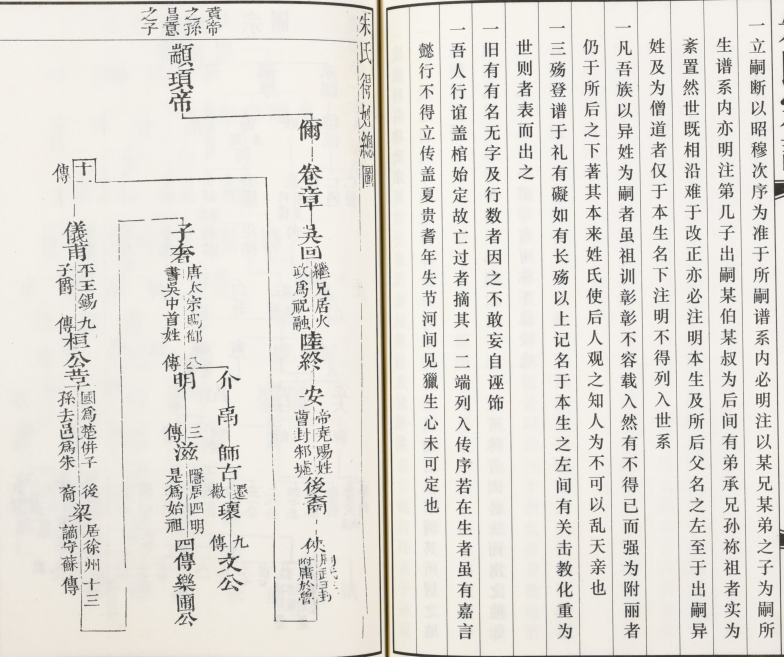 一立嗣断以昭穆次序为准于所嗣谱系内必明注以某兄某弟之子为嗣所
生谱系内亦明注第几子出嗣某伯某叔为后间有弟承兄孙祢祖者实为
紊置然世既相沿难于改正亦必注明本生及所后父名之左至于出嗣异
姓及为僧道者仅于本生名下注明不得列入世系
一凡吾族以异姓为嗣者虽祖训彰彰不容载入然有不得已而强为附丽者
仍于所后之下著其本来姓氏使后人观之知人为不可以乱天亲也
一三殇登谱于礼有礙如有长殇以上记名于本生之左间有关击教化重为
世则者表而出之
一旧有有名无字及行数者因之不敢妄自诬饰
一吾人行谊盖棺始定故亡过者摘其一二端列入传序若在生者虽有嘉言
懿行不得立传盖夏贵耆年失节河间见獵生心未可定也
朱氏得姓總圖
黄帝
之孫
昌意
之子
顓頊帝
偁
卷章
吳回
繼兄居火
政爲祝融
陸終
安
帝堯賜姓
曹封邾墟
後裔
俠
附庸於魯
十一
傳
儀甫
平王錫
子爵
九
傳
桓公革
國爲楚併子
孫去邑爲朱
後
裔
梁
居徐州
謫守蘇
十三
傳
子奢
唐太宗賜御
書吳中首姓
八
傳
明
三
傳
滋
隱居四明
是爲始祖
四傳樂圃公
介
禹
師古
還
歙
瓌
九
傳
文公